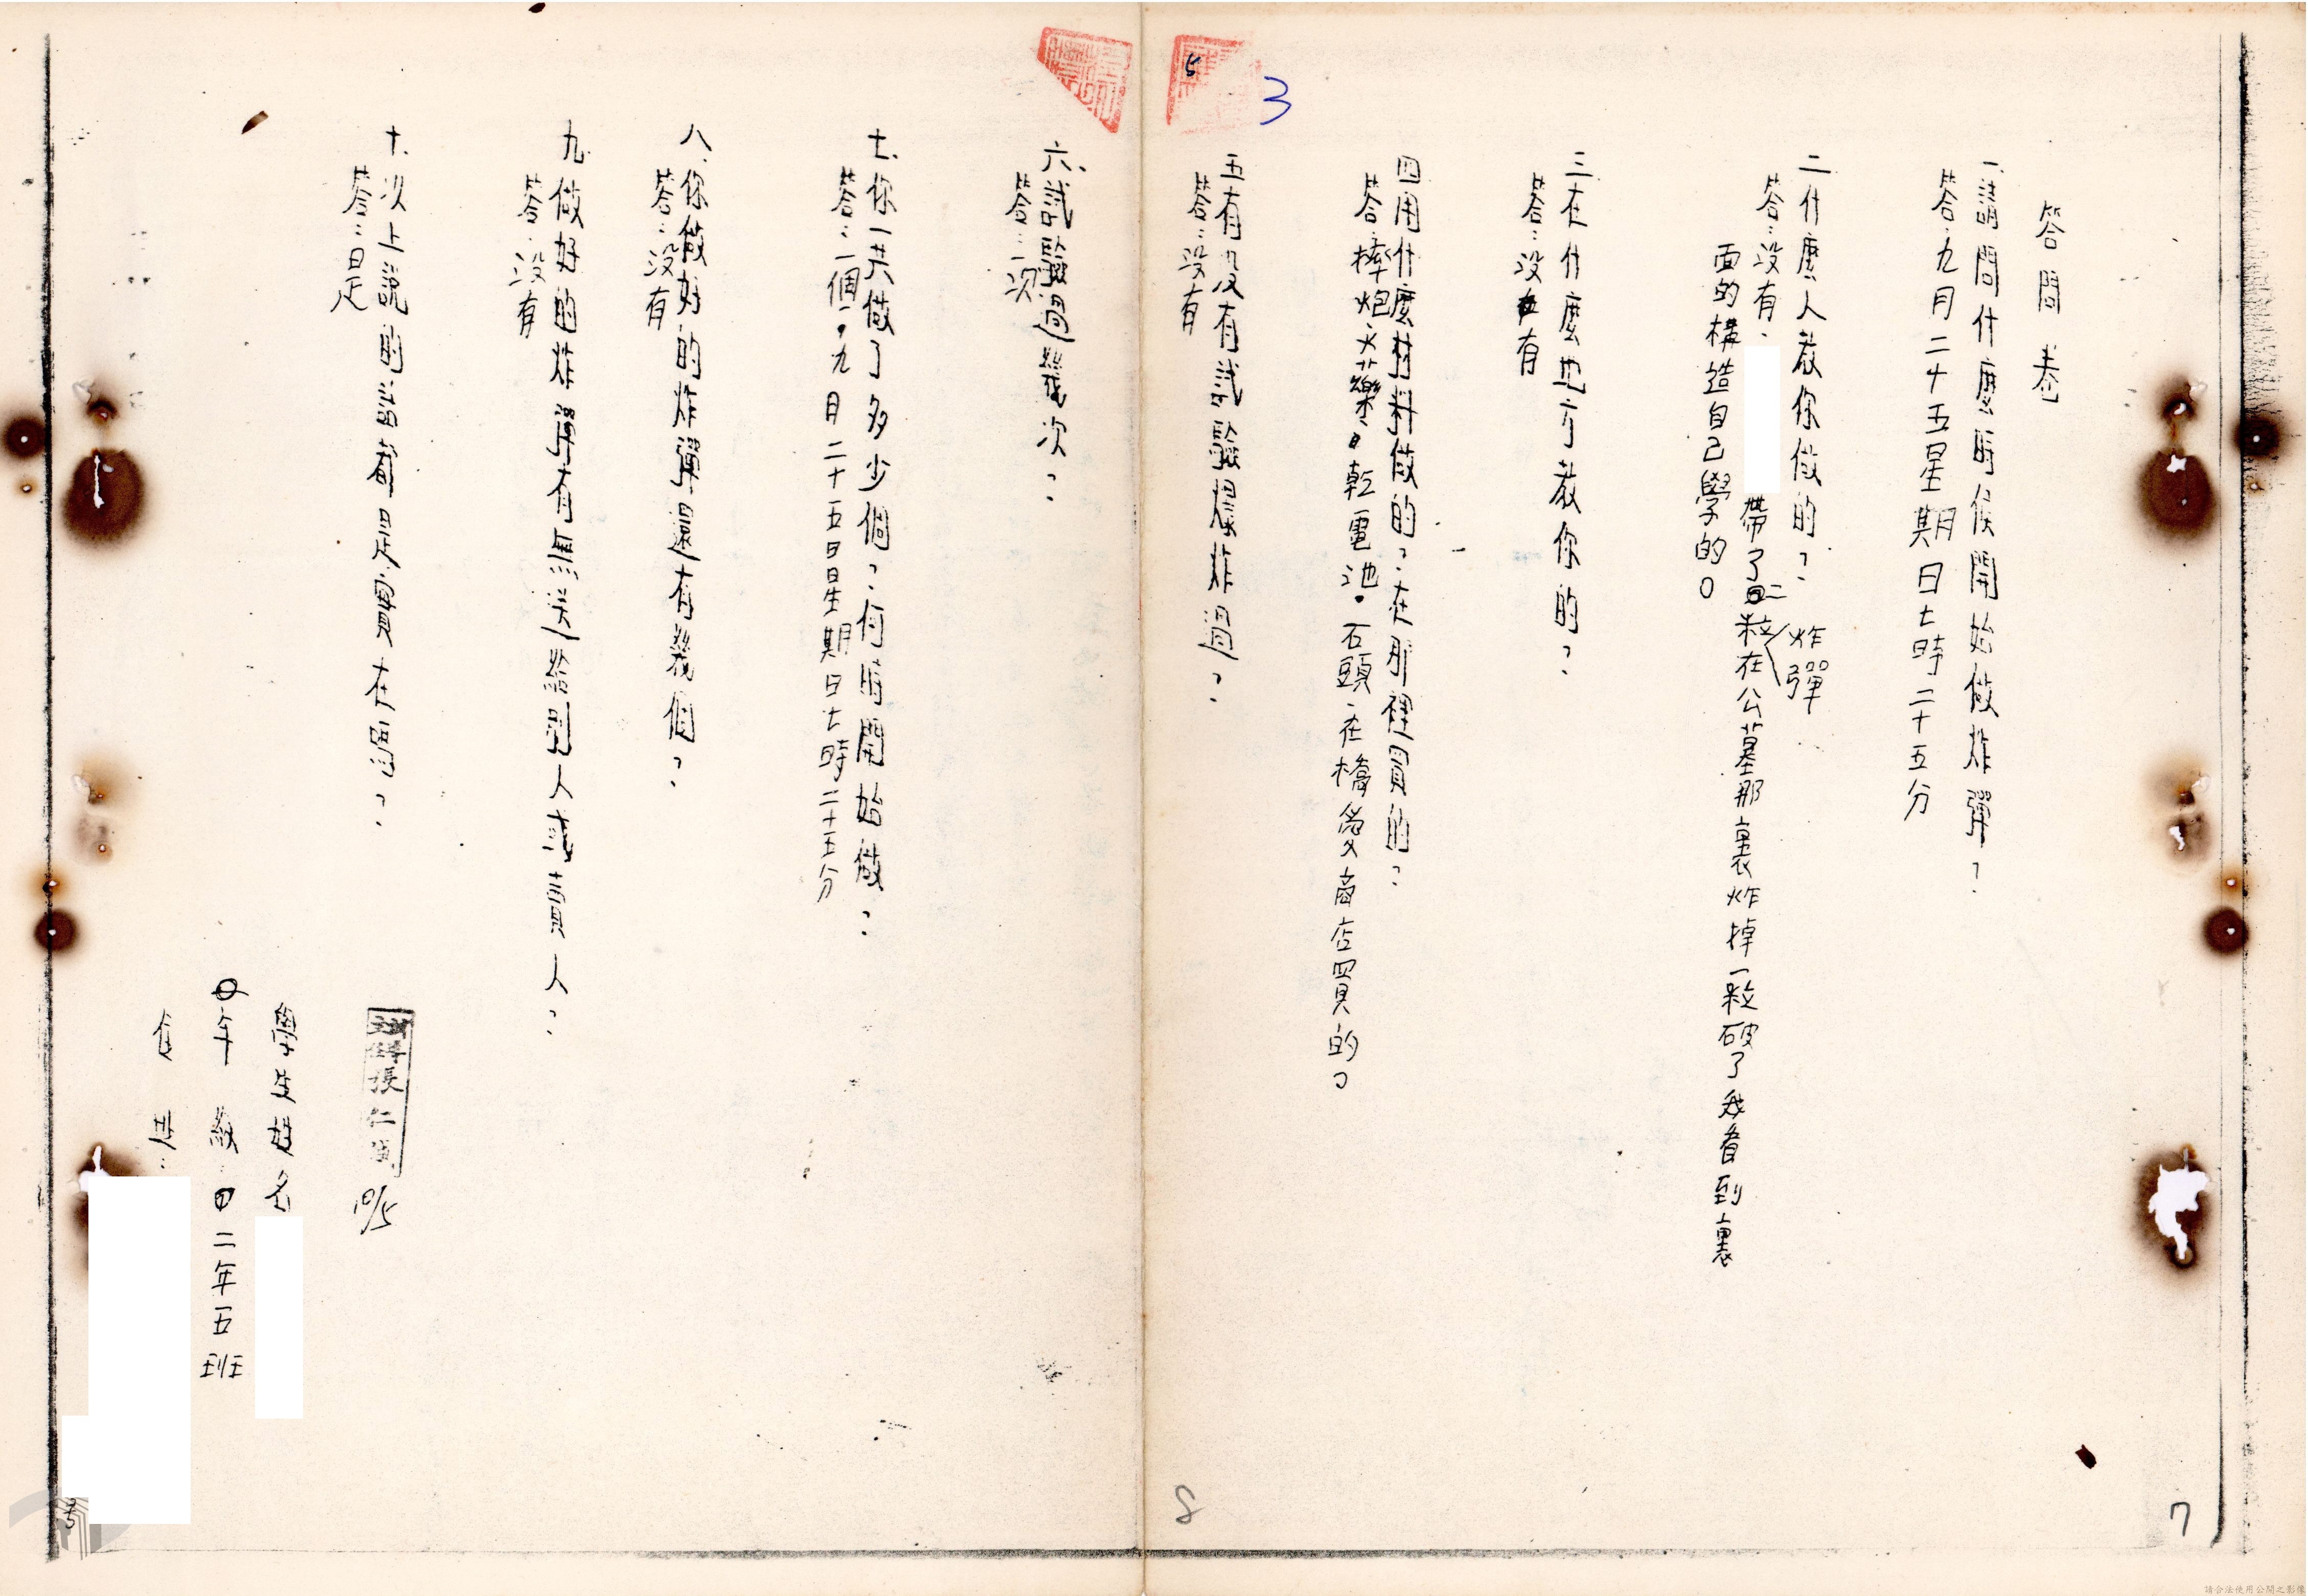 答問卷
一、請問什麼時候開始做炸彈？
答：九月二十五星期日七時二十五分
二什麼人教你做的？
答：没有、帶了二粒炸彈在公墓那裏炸掉一粒破了我看到裏
面的構造自己學的。
三在什麼地方教你的？
答：没有
四用什麼材料做的？在那裡買的？
答：摔炮、火藥、乾電池、石頭、在橋愛商店買的。
五有没有試驗爆炸過？
答：没有
六、試驗過幾次？
答：二次
七、你一共做了多少個？何時開始做？
答：二個、九月二十五日星期日七時二十五分
八、你做好的炸彈還有幾個？
答：没有
九、做好的炸彈有無送給別人或賣人？
答：没有
十、次上說的話都是實在嗎？
答：是
張仁
10/5
學生姓名
年級：二年五班
住址：
号
5
3
7
8
請合法使用公開之影像